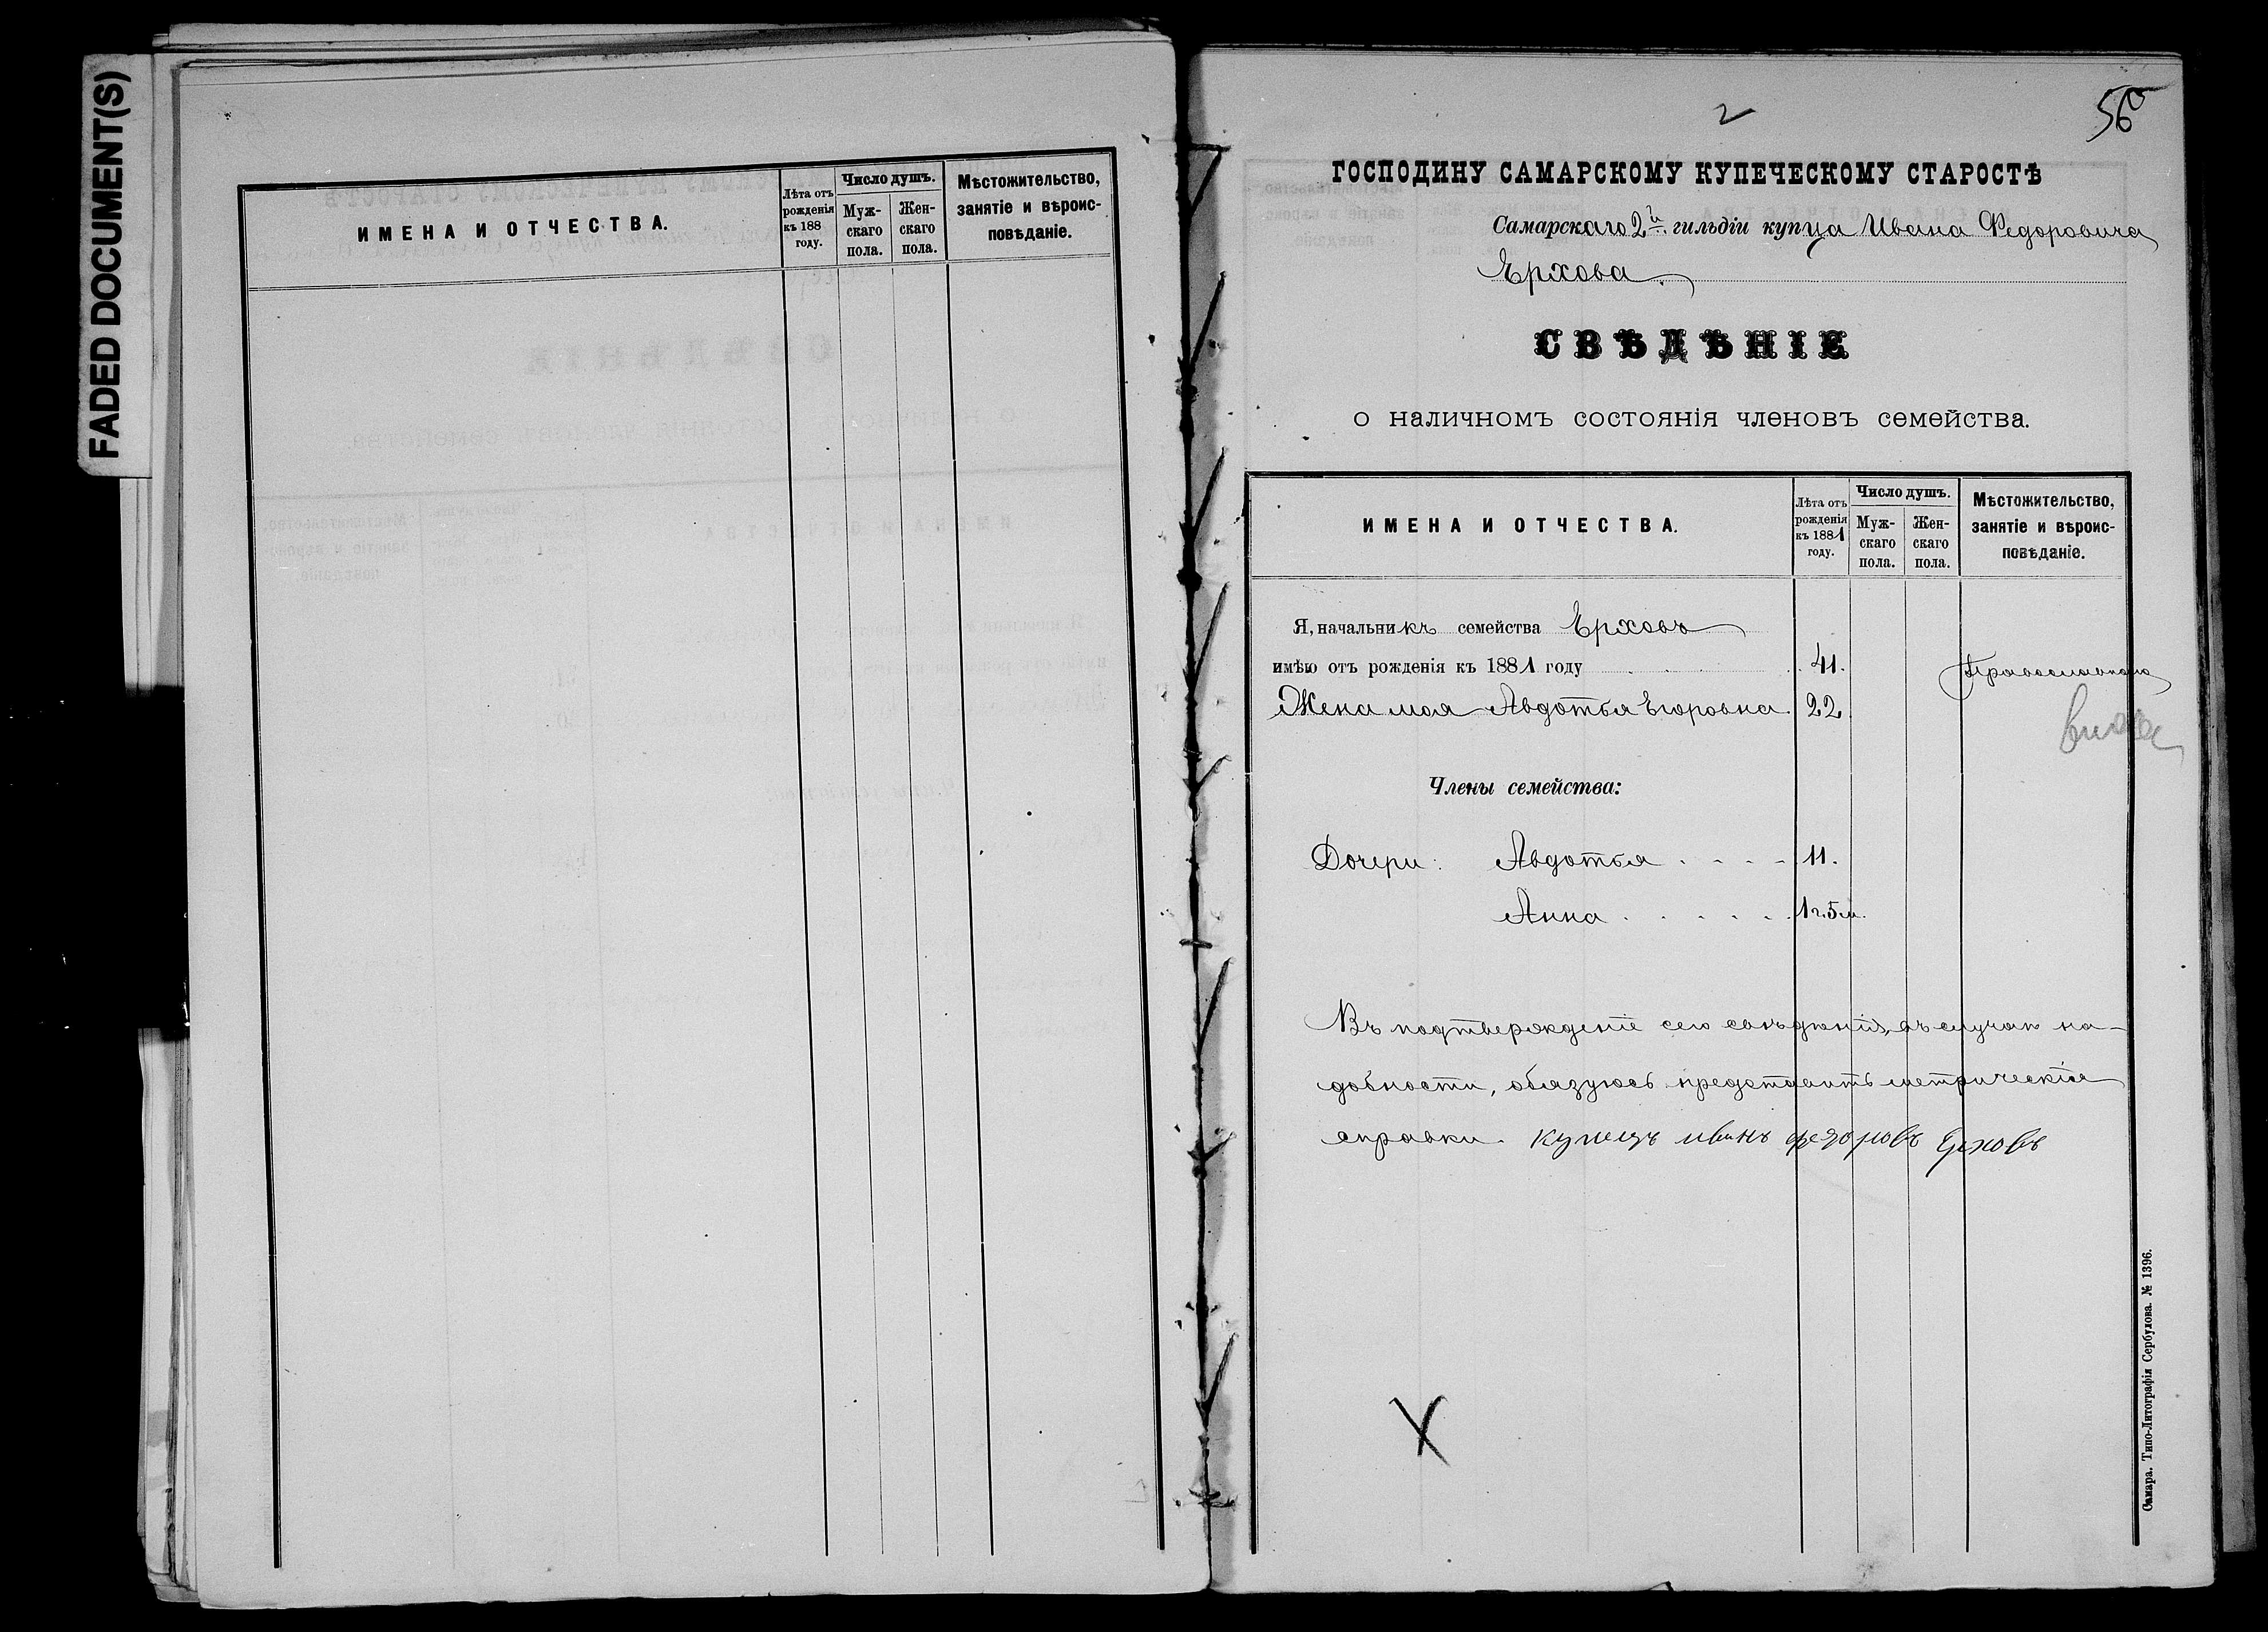 FADED DOCUMENT(S)
ИМЕНА И ОТЧЕСТВА.
Лѣта отъ рожденія къ 188 году.
Число душъ.
Муж-скаго пола.
Жен-скаго пола.
Мѣстожительство, занятіе и вѣроис-повѣданіе.
2
56
ГОСПОДИНУ САМАРСКОМУ КУПЕЧЕСКОМУ СТАРОСТѢ
Самарскаго 2й гильдіи купца Ивана Федоровича
Ерхова.
СВѢДѢНІЕ
о наличномъ состоянія членовъ семейства.
ИМЕНА И ОТЧЕСТВА.
Лѣта отъ рожденія къ 1881 году.
Число душъ.
Муж-скаго пола.
Жен-скаго пола.
Мѣстожительство, занятіе и вѣроис-повѣданіе.
Я, начальникъ семейства Ерховъ
имѣю отъ рожденія къ 1881 году 41. Православнаго
Жена моя Авдотья Егоровна 22
Члены семейства:
Дочери: Авдотья 11.
Анна 1 г. 5 м.
Въ подтвержденіе сего свѣдѣнія, въ случаѣ на-
добности, обязуюсь представить метрическія
справки. купецъ иванъ федоровъ Ерховъ
Самара. Типо-Литографія Сербулова. № 1396.